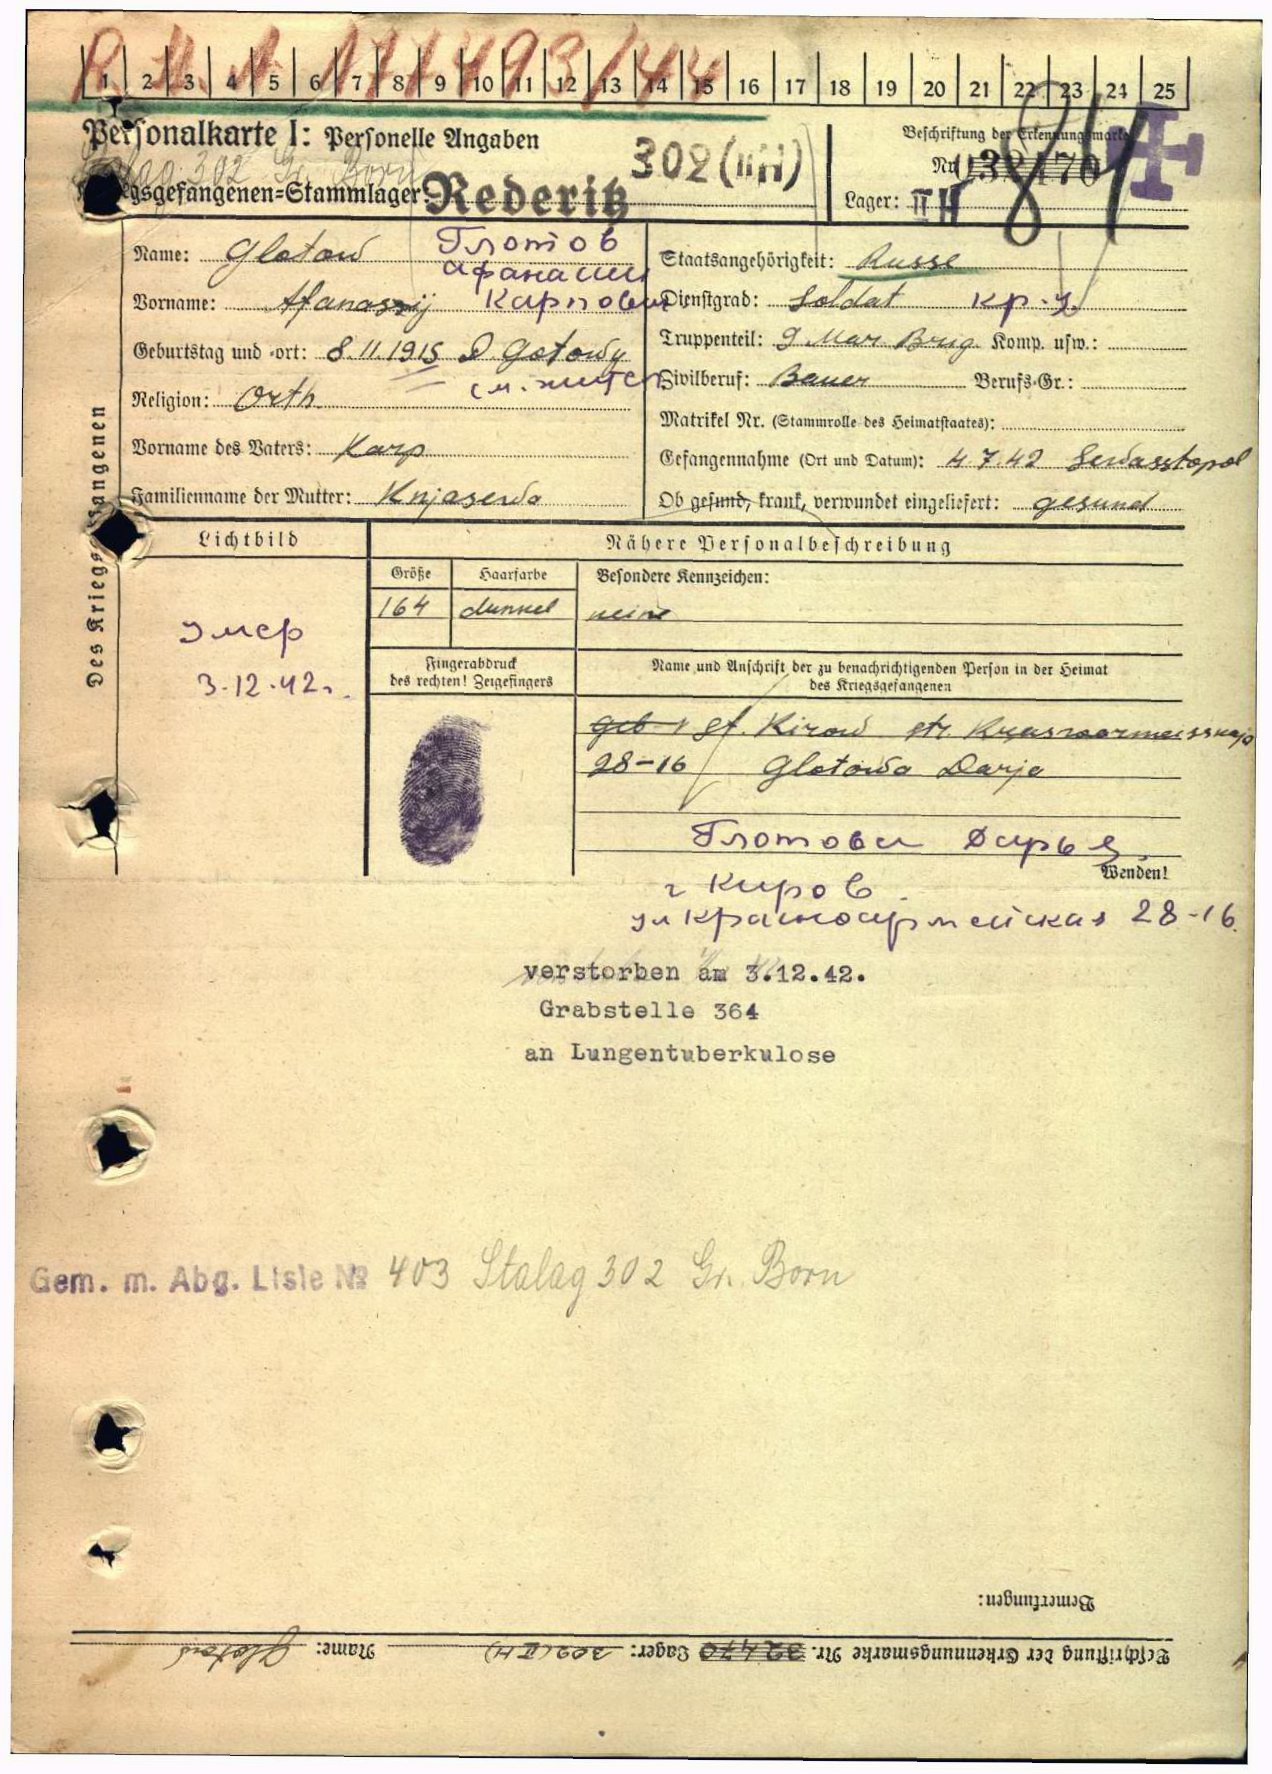 R.H.A. 177493/44
1 2 3 4 5 6 7 8 9 10 11 12 13 14 15 16 17 18 19 20 21 22 23 24 25
Personalkarte I: Personelle Angaben
302 (II H)
Beschriftung der Erkennungsmarke
Nr. 132470
84
Stalag 302 Gr. Born
Kriegsgefangenen-Stammlager: Rederitz
Lager: II H
Des Kriegsgefangenen
Name: Glotow Глотов
Афанасий
Vorname: Afanassij Карпович
Geburtstag und -ort: 8.11.1915 D. Gotowy
см. житель
Religion: Orth.
Vorname des Vaters: Karp
Familienname der Mutter: Knjasewa
Staatsangehörigkeit: Russe
Dienstgrad: Soldat кр-ц
Truppenteil: 9 Mar Brig Komp. usw.:
Zivilberuf: Bauer Berufs-Gr.:
Matrikel Nr. (Stammrolle des Heimatstaates):
Gefangennahme (Ort und Datum): 4.7.42 Sewasstopol
Ob gesund, krank, verwundet eingeliefert: gesund
Lichtbild
умер
3.12.42г.
Nähere Personalbeschreibung
Größe Haarfarbe Besondere Kennzeichen:
164 dunkel keine
Fingerabdruck
des rechten! Zeigefingers
Name und Anschrift der zu benachrichtigenden Person in der Heimat
des Kriegsgefangenen
Geb. st. Kirow str. Krasnoarmeisskaja
28-16 Glotowa Darja
Глотова Дарья
Wenden!
г Киров.
ул Красноармейская 28-16.
verstorben am 3.12.42.
Grabstelle 364
an Lungentuberkulose
Gem. m. Abg. Liste № 403 Stalag 302 Gr. Born
Bemerkungen:
Beschriftung der Erkennungsmarke Nr. 32470 Lager: 302 (II H) Name: Glotow